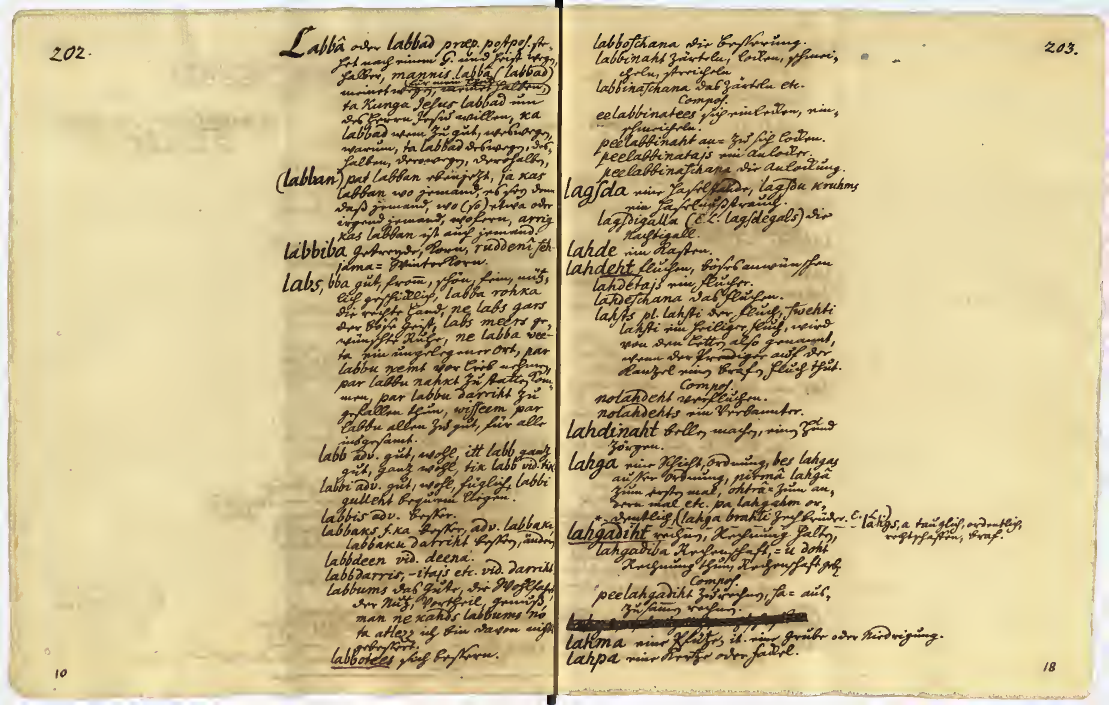 202.
Labbâ oder labbad præp. postpos. ste-
het nach einem G. und heist wegen,
halber, mannis labbâ (labbad)
meinetwegen, meinet halben,
ta Kunga Jesus labbad um
des Herrn Jesu willen, ka
labbad wem zu gut, weswegen,
warum, ta labbad deswegen, des-
halben, derowegen, derohalben,
(labban) pat labban eben jetzt, ja kas
labban wo jemand, es sey denn
daß jemand, wo (so) etwa oder
irgend jemand, wofern, arrig
kas labban ist auch jemand.
labbiba Getreyde, Korn, ruddeni sch
jama = Winterkorn.
labs, bba gut, from, schön, fein, nütz-
lich geschicklich, labba rohka
die rechte Hand, ne labs gars
der böse Geist, labs meers ge-
wünschte Ruhe, ne labba vee-
ta ein ungelegener Ort, par
labbu nemt vor lieb nehmen,
par labbu nahkt zu statten kom-
men, par labbu darriht zu
gefallen thun, wisseem par
labbu allen zu gut, für alle
insgesamt.
labb adv. gut, wohl, itt labb gantz
gut, gantz wohl, tik labb vid. tik
labbi adv. gut, wohl, füglich, labbi
gulleht bequem liegen.
labbis adv. besser.
labbaks, f. ka besser, adv. labbaku
labbaku darriht bessern, ändern
labbdeen vid. deena.
labbdarris, -itajs etc. vid. darriht
labbums das Gute, die Wohlfart
der Nutz, Vortheil, Genuß,
man ne kahds labbums no
ta atlezz ich bin davon nicht
gebessert.
labbotees sich bessern.
10
203.
labboschana die Besserung.
labbinaht zärteln, locken, schmei-
cheln, streicheln
labbinaschana das Zärteln etc.
Compos.
eelabbinatees sich einlocken, ein-
schmeicheln.
peelabbinaht an= zu sich locken.
peelabbinatajs ein Anlocker.
peelabbinaschana die Anlockung.
lagsda eine Haselstaude, lagsdu kruhms
ein Haselnußstrauch.
lagsdigalla (E. L. lagsdegals) die
Nachtigall.
lahde ein Kasten.
lahdeht fluchen, böses anwünschen
lahdetajs ein Flucher.
lahdeschana das Fluchen.
lahsts pl. lahsti der Fluch, swehti
lahsti ein heiliger Fluch, wird
von den Letten also genannt,
wenn der Prediger auf der
Kanzel einen Straf-Fluch thut.
Compos.
nolahdeht verfluchen.
nolahdehts ein Verbannter.
lahdinaht bellen machen, einen Hund
zörgen.
lahga eine Schicht, Ordnung, bes lahgas
ausser Ordnung, pirmâ lahgâ
zum ersten mal, ohträ= zum an-
dern mal etc. pa lahgahm or-
dentlich (lahga brahli Zechbrüder. E. L.) lahgs, a tauglich, ordentlich
rechtschaffen, brav.
lahgadiht rechnen, Rechnung halten,
lahgadiba Rechenschaft, = u doht
Rechnung thun, Rechenschaft geb.
Compos.
peelahgadiht zurechnen, sa= aus,
zusammen rechnen.
lahma eine Pfütze, it. eine Grube oder Niedrigung.
lahpa eine Kertze oder Fackel.
18